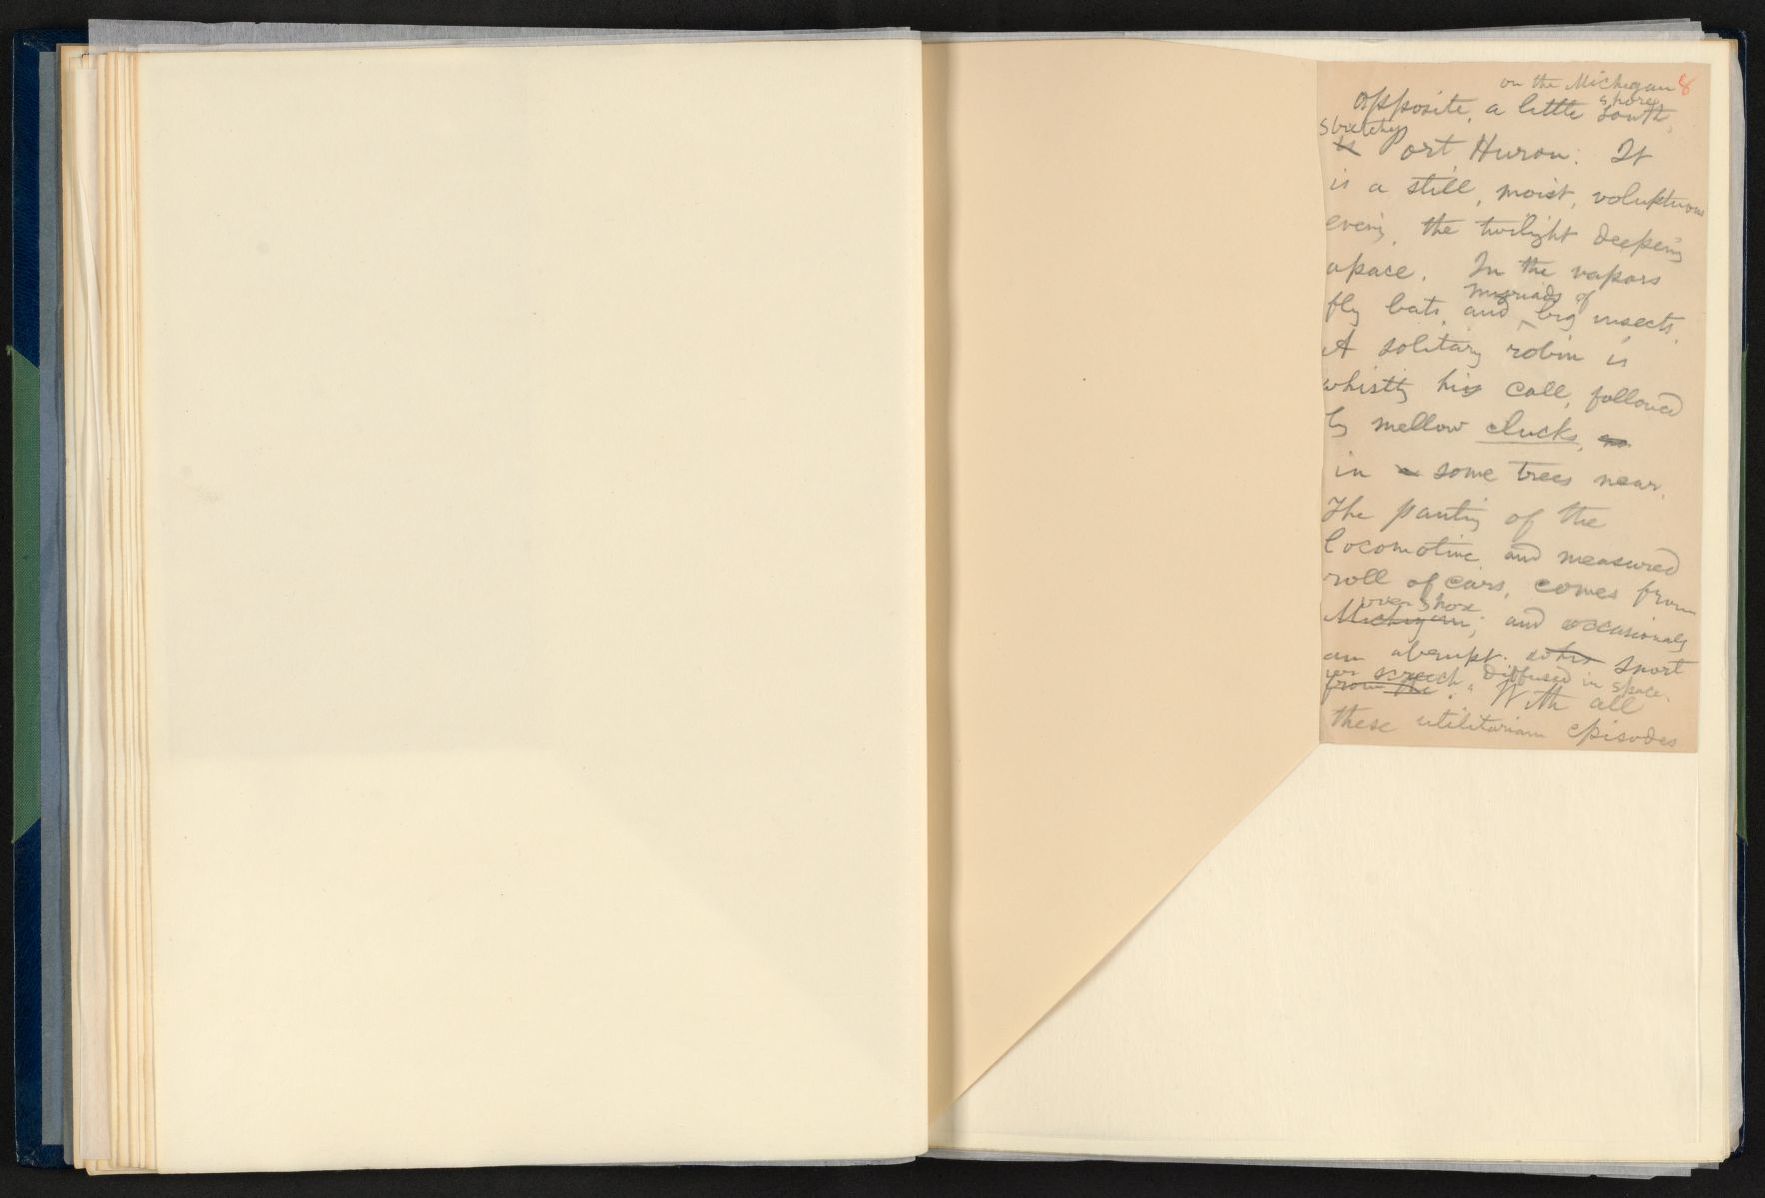 on the Michigan 8
shore
opposite, a little south,
stretches
is Port Huron. It
is a still, moist, voluptuous
eveng, the twilight deepeng
apace. In the vapors
myriads of
fly bats, and big insects.
A solitary robin is
whistlg his call, followed
by mellow clucks,
in a some trees near.
The panting of the
locomotive and measured
roll of cars, comes from
over shore
Michigan; and occasionally
an abrupt snort
or screech, diffused in space.
from the. With all
these utilitarian episodes